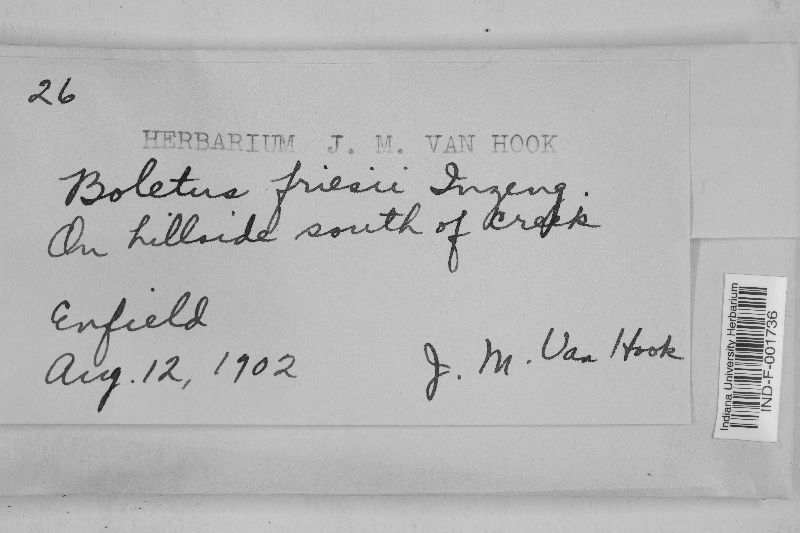 26
HERBARIUM J. M. VAN HOOK
Boletus friesii Inzeng.
On hillside south of creek
Enfield
Aug. 12, 1902
J. M. Van Hook
Indiana University Herbarium
IND-F-001736